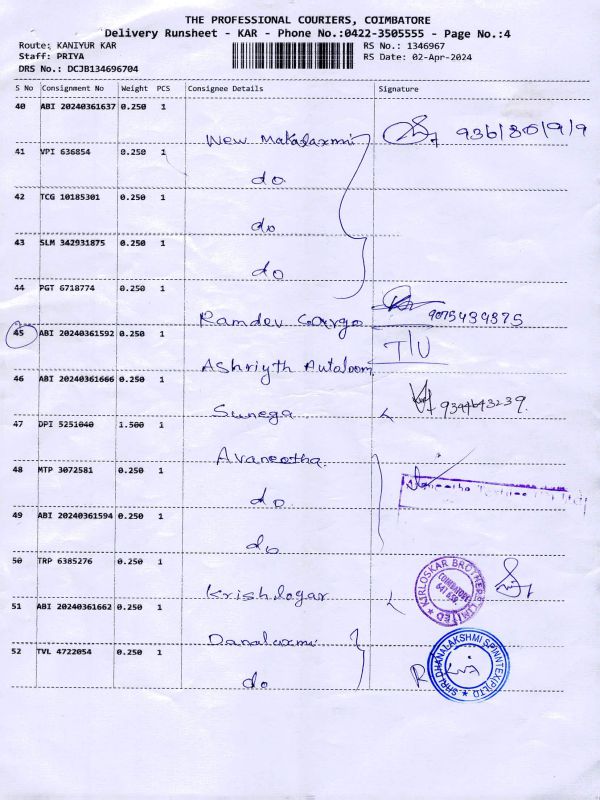 THE PROFESSIONAL COURIERS, COIMBATORE
Delivery Runsheet - KAR - Phone No.:0422-3505555 - Page No.:4
Route: KANIYUR KAR
RS No.: 1346967
Staff: PRIYA
RS Date: 02-Apr-2024
DRS No.: DCJB134696704
S No Consignment No Weight PCS Consignee Details Signature
40 ABI 20240361637 0.250 1
New Mahalaxmi
41 VPI 636854 0.250 1
do
42 TCG 10185301 0.250 1
do
43 SLM 342931875 0.250 1
do
44 PGT 6718774 0.250 1
Ramdev Cargo 9075439375
45 ABI 20240361592 0.250 1
Ashriyth T/U
46 ABI 20240361666 0.250 1
Sunega 9344643239.
47 DPI 5251040 1.500 1
Avaneetha
48 MTP 3072581 0.250 1
do
49 ABI 20240361594 0.250 1
do
50 TRP 6385276 0.250 1
Krishlogar KIRLOSKAR BROTHERS LIMITED COIMBATORE
51 ABI 20240361662 0.250 1
Danalaxmi
52 TVL 4722054 0.250 1
do SHRI DHANALAKSHMI SPINNTEX(P)LTD